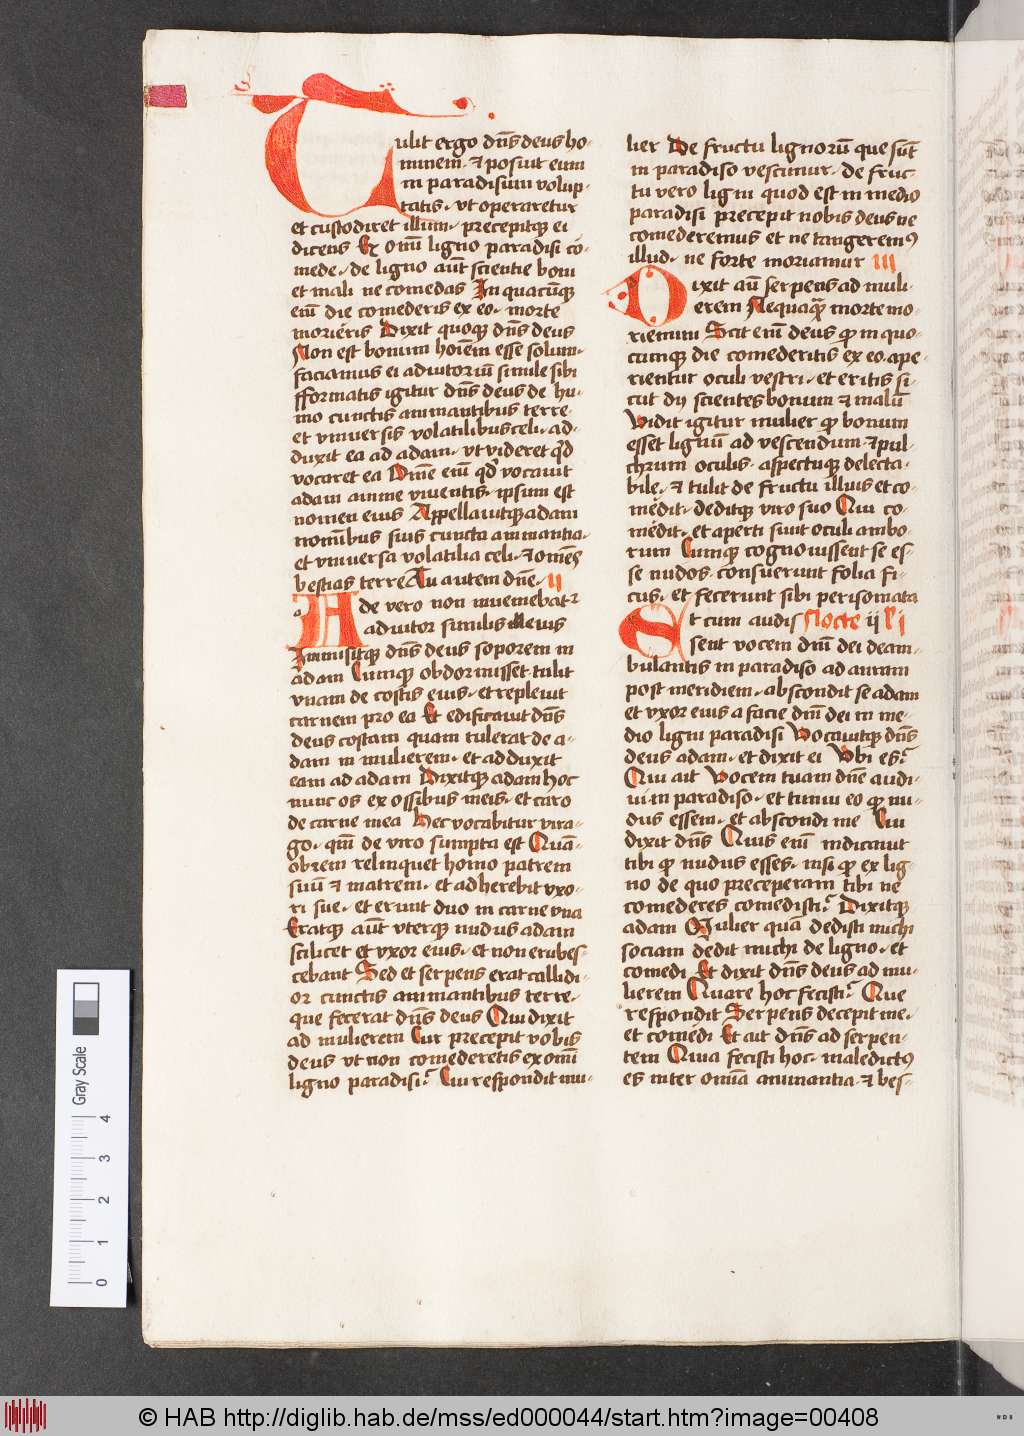 Tulit ergo dn̄s deus ho-
minem· et posuit eum
in paradisum volup-
tatis· vt operaretur
et custodiret illum· precepitque ei
dicens Ex omī ligno paradisi co-
mede· de ligno aūt scientie boni
et mali ne comedas In quacūque
enī die comederis ex eo· morte
morieris Dixit quoque dn̄s deus
Non est bonum hoīem esse solum·
faciamus ei adiutoriū simile sibi
fformatis igitur dn̄s deus de hu-
mo cunctis animantibus terre
et vniuersis volatilibus celi· ad-
duxit ea ad adam· vt videret qd̓
vocaret ea Om̄e enī qd̓ vocauit
adam anime viuentis· ipsum est
nomen eius Appellauitque adam
nominibus suis cuncta animantia·
et vniuersa volatilia celi· et om̄es
bestias terre Tu autem dn̄e· ii
Ade vero non inueniebatur
adiutor similis eius
Inmisitque dn̄s deus soporem in
adam Cumque obdormisset· tulit
vnam de costis eius· et repleuit
carnem pro ea Et edificauit dn̄s
deus costam quam tulerat de a-
dam in mulierem· et adduxit
eam ad adam Dixitque adam hoc
nunc os ex ossibus meis· et caro
de carne mea Hec vocabitur vira-
go· qm̄ de viro sumpta est Quā-
obrem relinquet homo patrem
suū et matrem· et adherebit vxo-
ri sue· et erunt duo in carne vna
Eratque aūt vterque nudus adam
scilicet et vxor eius· et non erubes-
cebant Sed et serpens erat callidi-
or cunctis animantibus terre·
que fecerat dn̄s deus Qui dixit
ad mulierem Cur precepit vobis
deus vt non comederetis ex omī
ligno paradisi? Cui respondit mu-
lier De fructu lignorū que sūt
in paradiso vescimur· de fruc-
tu vero ligni quod est in medio
paradisi precepit nobis deus ne
comederemus et ne tangeremꝰ
illud· ne forte moriamur iii
Dixit aūt serpens ad muli-
erem Nequaquā morte mo-
riemini Scit enī deus quod in quo-
cumque die comederitis ex eo· ape-
rientur oculi vestri· et eritis si-
cut dij scientes bonum et malū
Vidit igitur mulier quod bonum
esset lignū ad vescendum· et pul-
chrum oculis· aspectuque delecta-
bile· et tulit de fructu illius et co-
medit· deditque viro suo Qui co-
medit· et aperti sunt oculi ambo-
rum Cumque cognouissent se es-
se nudos· consuerunt folia fi-
cus· et fecerunt sibi perisomata
Et cum audis Nocte ij Li
sent vocem dnī dei deam-
bulantis in paradiso ad auram
post meridiem· abscondit se adam
et vxor eius a facie dnī dei in me-
dio ligni paradisi Vocauitque dn̄s
deus adam· et dixit ei Vbi es?
Qui ait Vocem tuam dn̄e audi-
ui in paradiso· et timui eo quod nu-
dus essem· et abscondi me Cui
dixit dn̄s Quis enī indicauit
tibi quod nudus esses· nisi quod ex lig-
no de quo preceperam tibi ne
comederes comedisti? Dixitque
adam Mulier quā dedisti michi
sociam dedit michi de ligno· et
comedi Et dixit dn̄s deus ad mu-
lierem Quare hoc fecisti? Que
respondit Serpens decepit me·
et comedi Et ait dn̄s ad serpen-
tem Quia fecisti hoc· maledictꝰ
es inter omīa animantia· et bes-
Gray Scale
0 1 2 3 4
© HAB http://diglib.hab.de/mss/ed000044/start.htm?image=00408